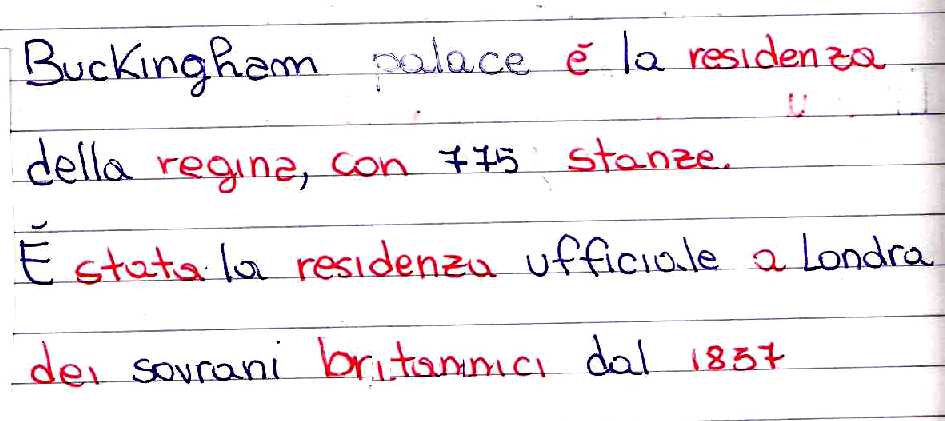 Buckingham palace é la residenza
della regina, con 775 stanze.
É stata la residenza ufficiale a Londra
dei sovrani britannici dal 1837